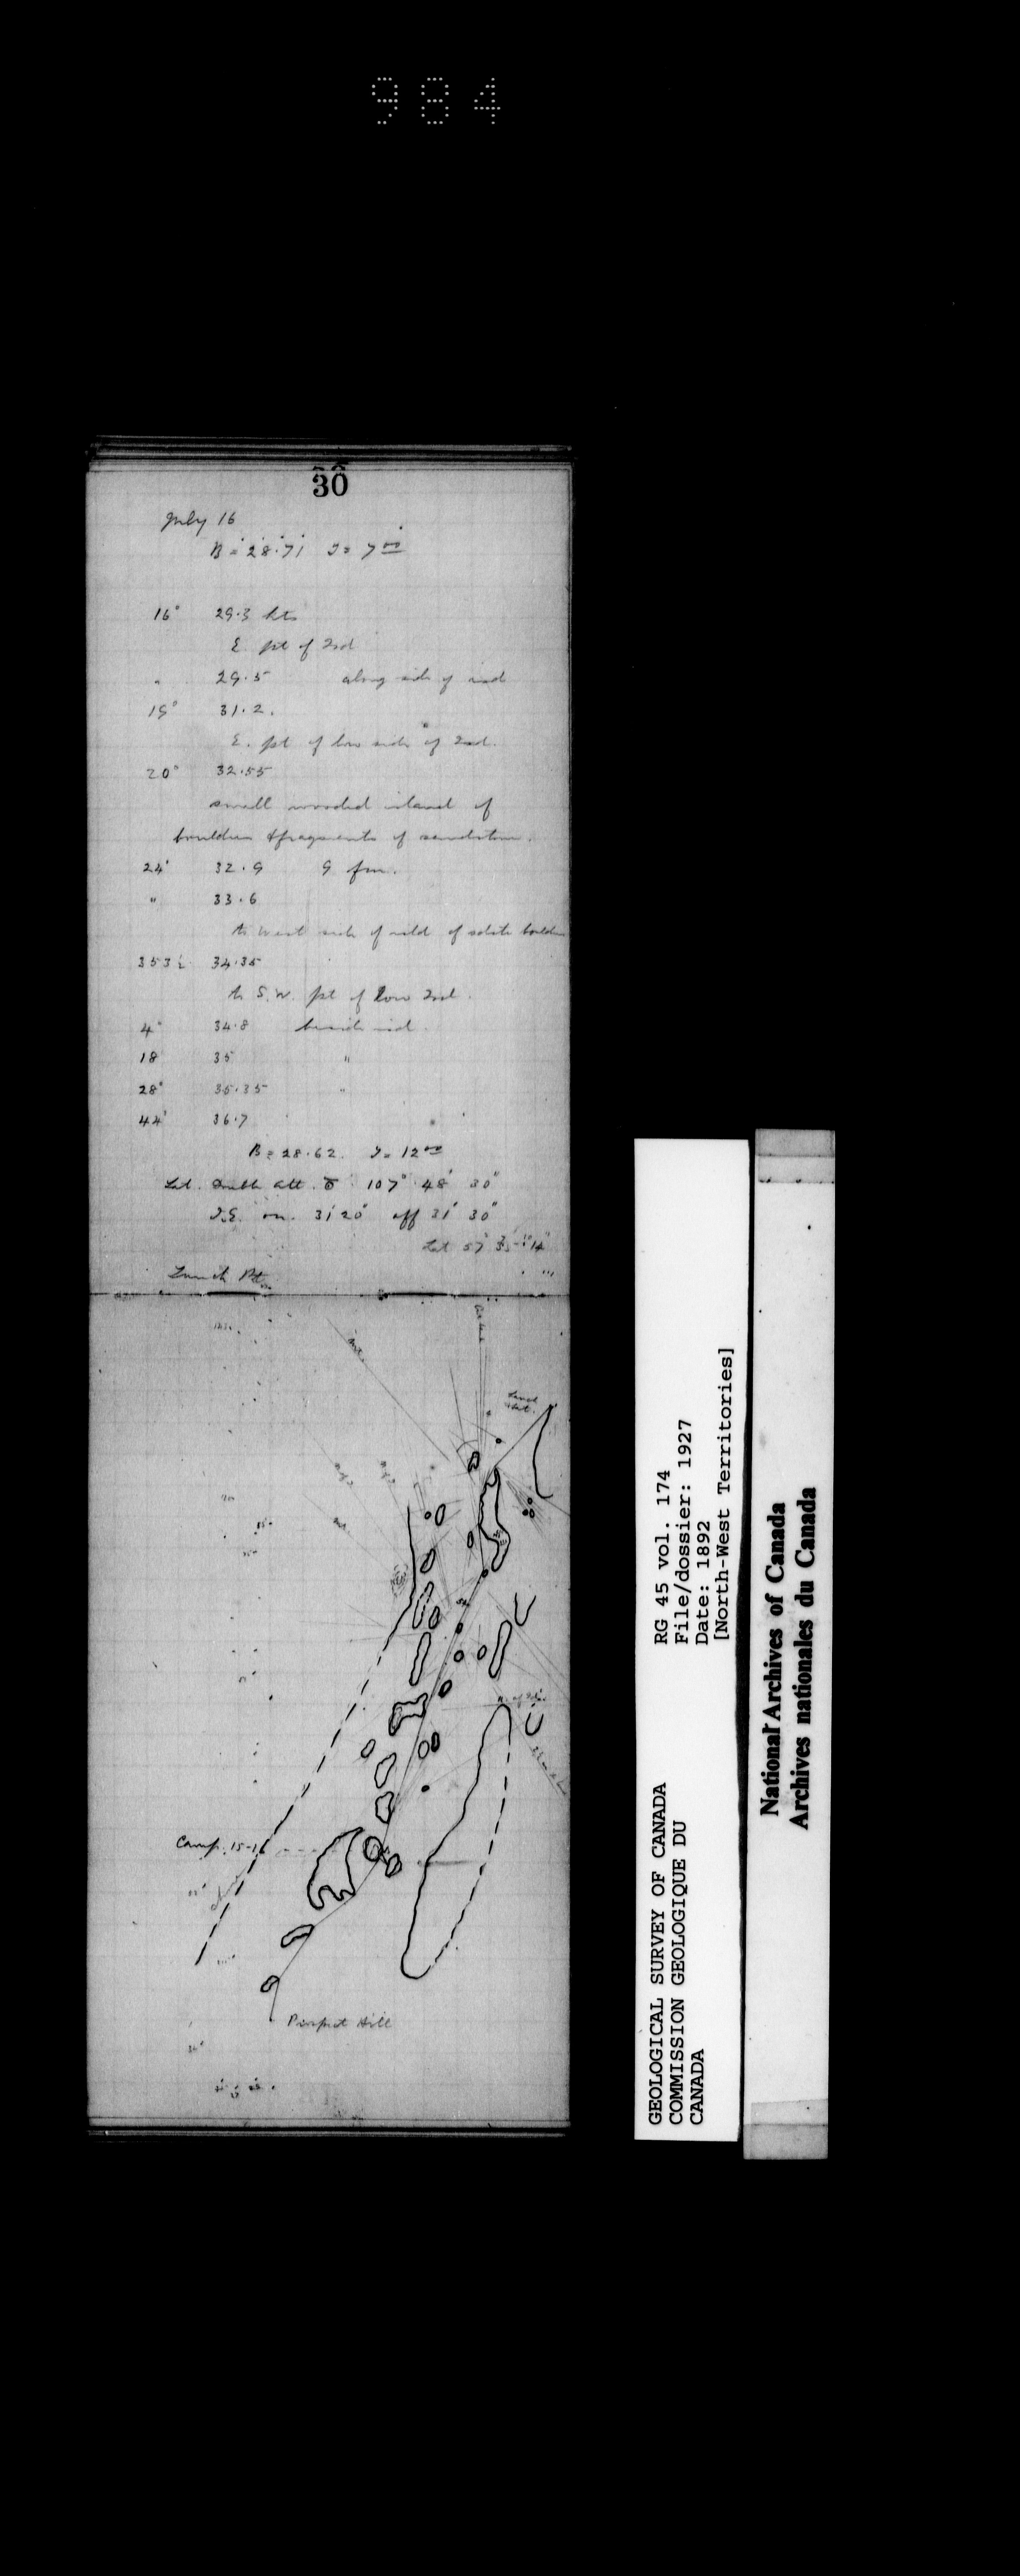 984
30
July 16
B = 28.71 T = 7 00
16° 29.3 kts
E. pt of Isd
" 29.5 along side of isd
19° 31.2.
E. pt of low side of Isd.
20° 32.55
small wooded island of
boulders & fragments of sandstone.
24° 32.9 9 fm.
" 33.6
to West side of isld of boulders
353½ 34.35
to S.W. pt of low Isd.
4° 34.8 beside isd.
18 35 "
28° 35.35 "
44° 36.7
B = 28.62. T = 12 00
Lat. Double alt. 107° 48' 30"
I.E. on. 31' 20" off 31' 30"
Lat 57° 14"
Lunch Pt.
Lunch
Camp. 15-16
Prospect Hill
GEOLOGICAL SURVEY OF CANADA
COMMISSION GEOLOGIQUE DU
CANADA
RG 45 vol. 174
File/dossier: 1927
Date: 1892
[North-West Territories]
National Archives of Canada
Archives nationales du Canada